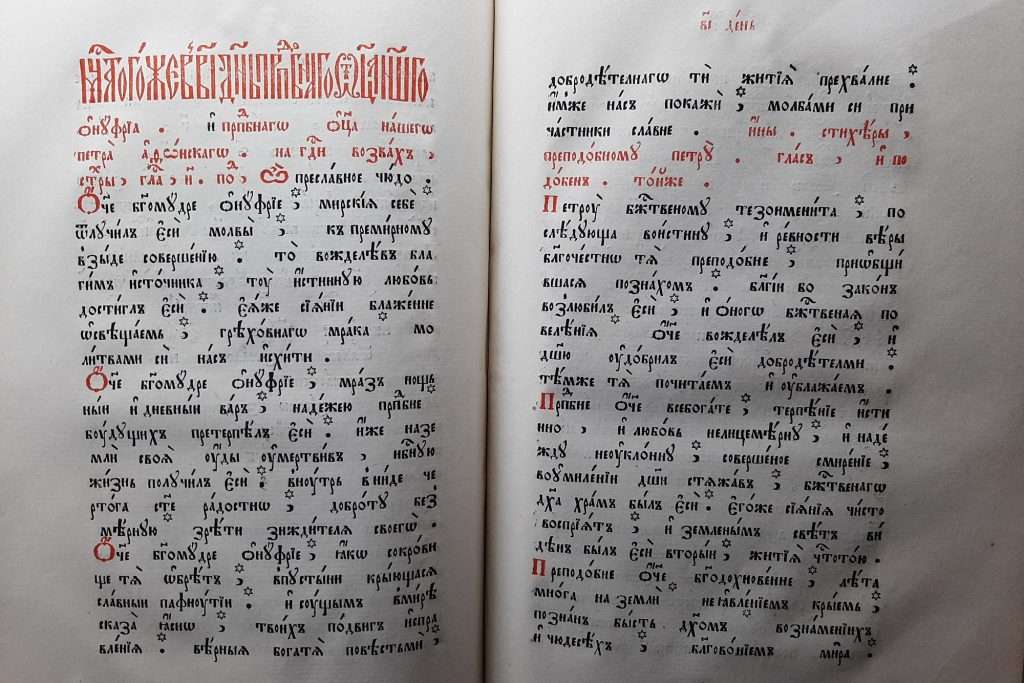 мⷭ҇ца тогожⷣе, в҃і, дн҃ь, прпⷣбнагѡ ѻц҃а нш҃гѡ
ѻ҆ну́фрїа . и҆ прпⷣбнагѡ ѻц҃а на́шегѡ
петра̀ а҆ѳѡ́нскагѡ . на гдⷭ҇и возва́хъ ,
стⷯры , гла́ , и҃ . по́ , Ѽ пресла́вное чю́до .
Ѻ҆́ч҃е бг҃омꙋ́дре ѻ҆нꙋ́фрїе , мирскі́ѧ себѐ
ѿлꙋчи́лъ є҆сѝ молвы̀ , къ преми́рномꙋ
взы́де соверше́нїю . то̀ вожделѣ́въ бла
ги́мъ и҆сто́чника , тоꙋ̀ и҆́стиннꙋю любо́вь
дости́глъ є҆сѝ . є҆ѧ́же сїѧ́нїи блаже́нне
ѡ҆свѣща́емь , грѣхо́внагѡ мра́ка мо
ли́твами си̏ на́съ и҆схи́ти .
Ѻ҆́ч҃е бг҃омꙋ́дре ѻ҆нꙋ́фрїе , мра́зъ нощь
ны́и и҆ дне́вныи ва́ръ , наде́жею прпⷣбне
боꙋ́дꙋщихъ претерпѣ́лъ є҆сѝ . и҆́же на зе
мли своѧ̀ оу҆́ды оу҆мертви́въ , нбⷭ҇нꙋю
жи́знь полꙋчи́лъ є҆сѝ . внꙋ́трь вни́де че
рто́га ст҃е ра́достнѡ , добро́тꙋ без̾
мѣ́рнꙋю зрѣ́ти зижди́телѧ своегѡ̀ .
Ѻ҆́ч҃е бг҃омꙋ́дре ѻ҆нꙋ́фрїе , ꙗ҆́кѡ сокро́ви
ще тѧ̀ ѡ҆брѣ́тъ , впꙋсты́ни кры́ющасѧ
сла́вныи пафно́ꙋтїи . и҆ соꙋ́щымъ вми́рѣ
сказа̀ ꙗ҆́снѡ , твои́хъ по́двигъ и҆спра
вле́нїѧ . вѣ́рныѧ бога́тѧ по́вѣстьми ,
в҃і де́нь
добродѣ́телнагѡ тѝ житїѧ̀ прехва́лне .
и҆́мже на́съ покажѝ , молба́ми си при
ча́стники сла́вне . и҆́ны . стихѣ́ры ,
преподо́бномꙋ петрꙋ̀ . гла́съ , и҃ по
до́бенъ . то́йже .
Петроꙋ̀ бжⷭ҇твеномꙋ тезоимени́та , по
слѣ́дꙋюща вои́стинꙋ , и҆ ре́вности вѣ́ры
бл҃гоче́стнѡ тѧ̀ преподо́бне , приѡбщи́
вшасѧ позна́хомъ . бл҃гі́и бо зако́нъ
возлюби́лъ є҆сѝ , и҆ о́ногѡ бжⷭ҇твенаѧ по
велѣ́нїѧ ѻ҆́ч҃е вожделѣ́лъ є҆сѝ , и҆
дш҃ю оу҆до́брилъ є҆сѝ добродѣ́телми .
тѣ́мже тѧ̀ почита́емъ и҆ оу҆блажа́емъ .
Прпⷣбне ѻ҆́ч҃е всебога́те , терпѣ́нїе и҆́сти
нно , и҆ любо́вь нелицемѣ́рнꙋ , и҆ наде́
ждꙋ неꙋкло́ннꙋ , соверше́ное смире́нїе ,
воꙋмиле́нїи дш҃и стѧжа́въ , бжⷭ҇твенагѡ
дх҃а хра́мъ бы́лъ є҆сѝ . є҆гѡ́же сїѧ́нїѧ чи́сто
воспрїѧ́тъ , и҆ земле́нымъ свѣ́тъ ви́
дѣнъ бы́лъ є҆сѝ вторы́и , житїѧ̀ чⷭ҇тото́ю .
Преподо́бне ѻ҆́ч҃е бг҃одохнове́нне , лѣ́та
мно́га на землѝ не ꙗ҆вле́нїемъ кры́емь ,
позна́нъ бы́сть дх҃о́мъ возна́менїихъ
и҆ чюдесѣ́хъ , бл҃гово́нїемъ мѵ́ра .